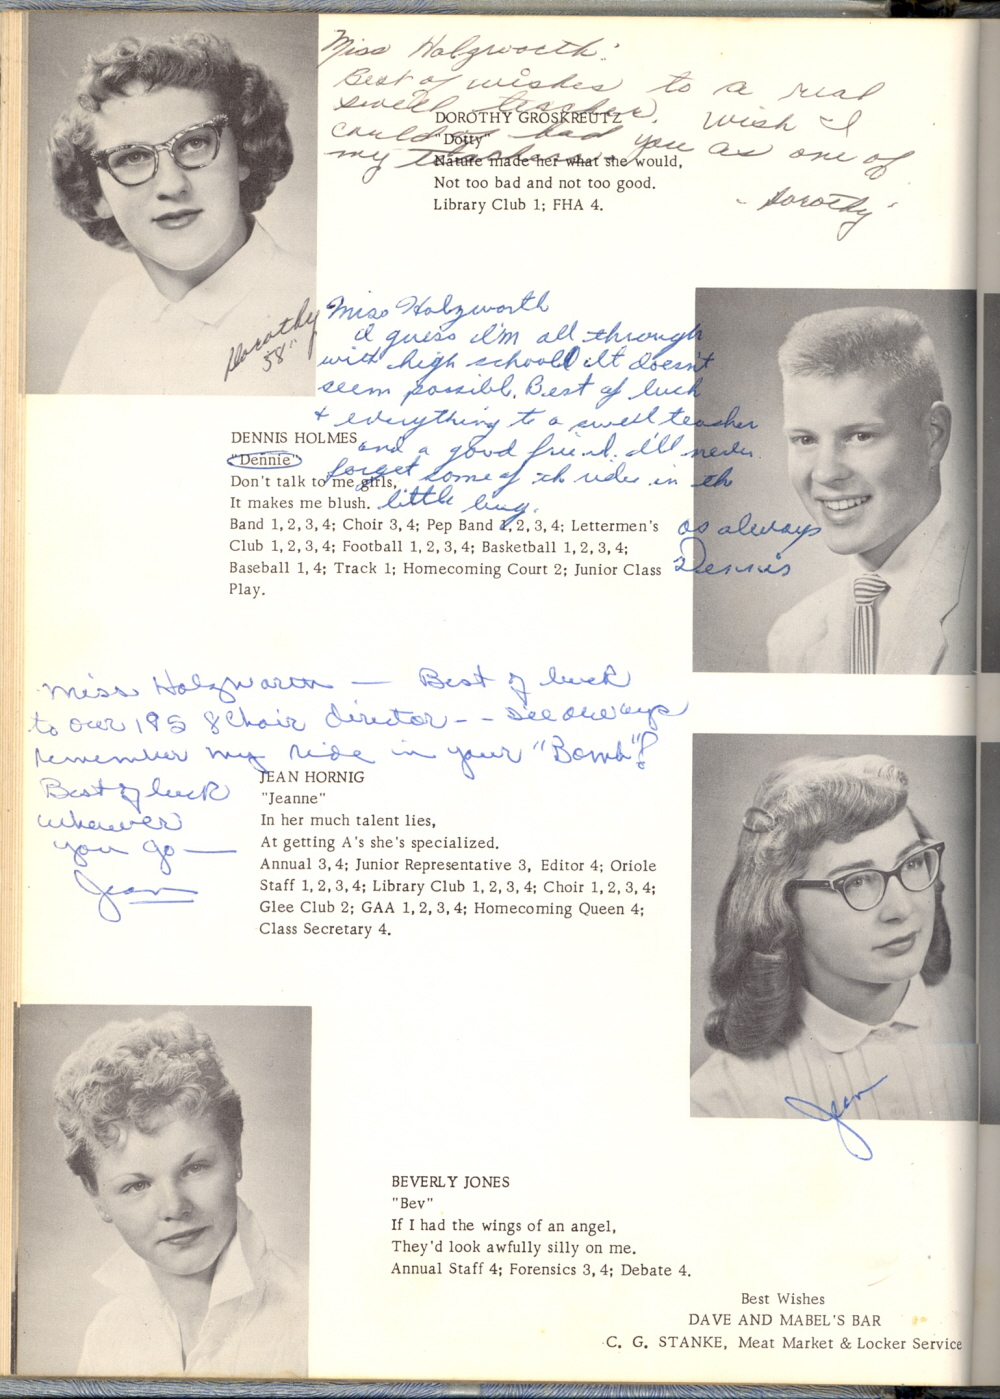 Miss Holzworth:
Best of wishes to a real
swell teacher. Wish I
could had you as one of
my teachers
- Dorothy
DOROTHY GROSKREUTZ
"Dotty"
Nature made her what she would,
Not too bad and not too good.
Library Club 1; FHA 4.
Dorothy
58"
Miss Holzworth
I guess I'm all through
with high school It doesn't
seem possible. Best of luck
& everything to a swell teacher
and a good friend. I'll never
forget some of th rides in th
little bug.
as always
Dennis
DENNIS HOLMES
"Dennie"
Don't talk to me girls,
It makes me blush.
Band 1, 2, 3, 4; Choir 3, 4; Pep Band 1, 2, 3, 4; Lettermen's
Club 1, 2, 3, 4; Football 1, 2, 3, 4; Basketball 1, 2, 3, 4;
Baseball 1, 4; Track 1; Homecoming Court 2; Junior Class
Play.
Miss Holzworth — Best of luck
to our 1958 Choir director - - I'll always
remember my ride in your "Bomb"!
Best of luck
wherever
you go —
Jean
JEAN HORNIG
"Jeanne"
In her much talent lies,
At getting A's she's specialized.
Annual 3, 4; Junior Representative 3, Editor 4; Oriole
Staff 1, 2, 3, 4; Library Club 1, 2, 3, 4; Choir 1, 2, 3, 4;
Glee Club 2; GAA 1, 2, 3, 4; Homecoming Queen 4;
Class Secretary 4.
Jean
BEVERLY JONES
"Bev"
If I had the wings of an angel,
They'd look awfully silly on me.
Annual Staff 4; Forensics 3, 4; Debate 4.
Best Wishes
DAVE AND MABEL'S BAR
C. G. STANKE, Meat Market & Locker Service